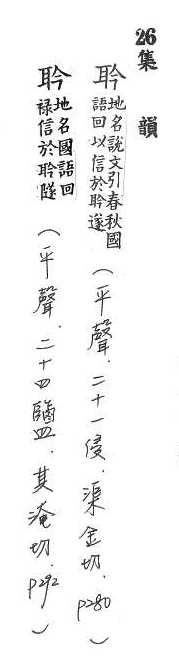 26集 韻
耹
地名說文引春秋國
語回以信於耹遂
(平聲.二十一侵.渠金切.p280)
耹
地名國語回
祿信於耹隧
(平聲.二十四鹽.其淹切.p292)